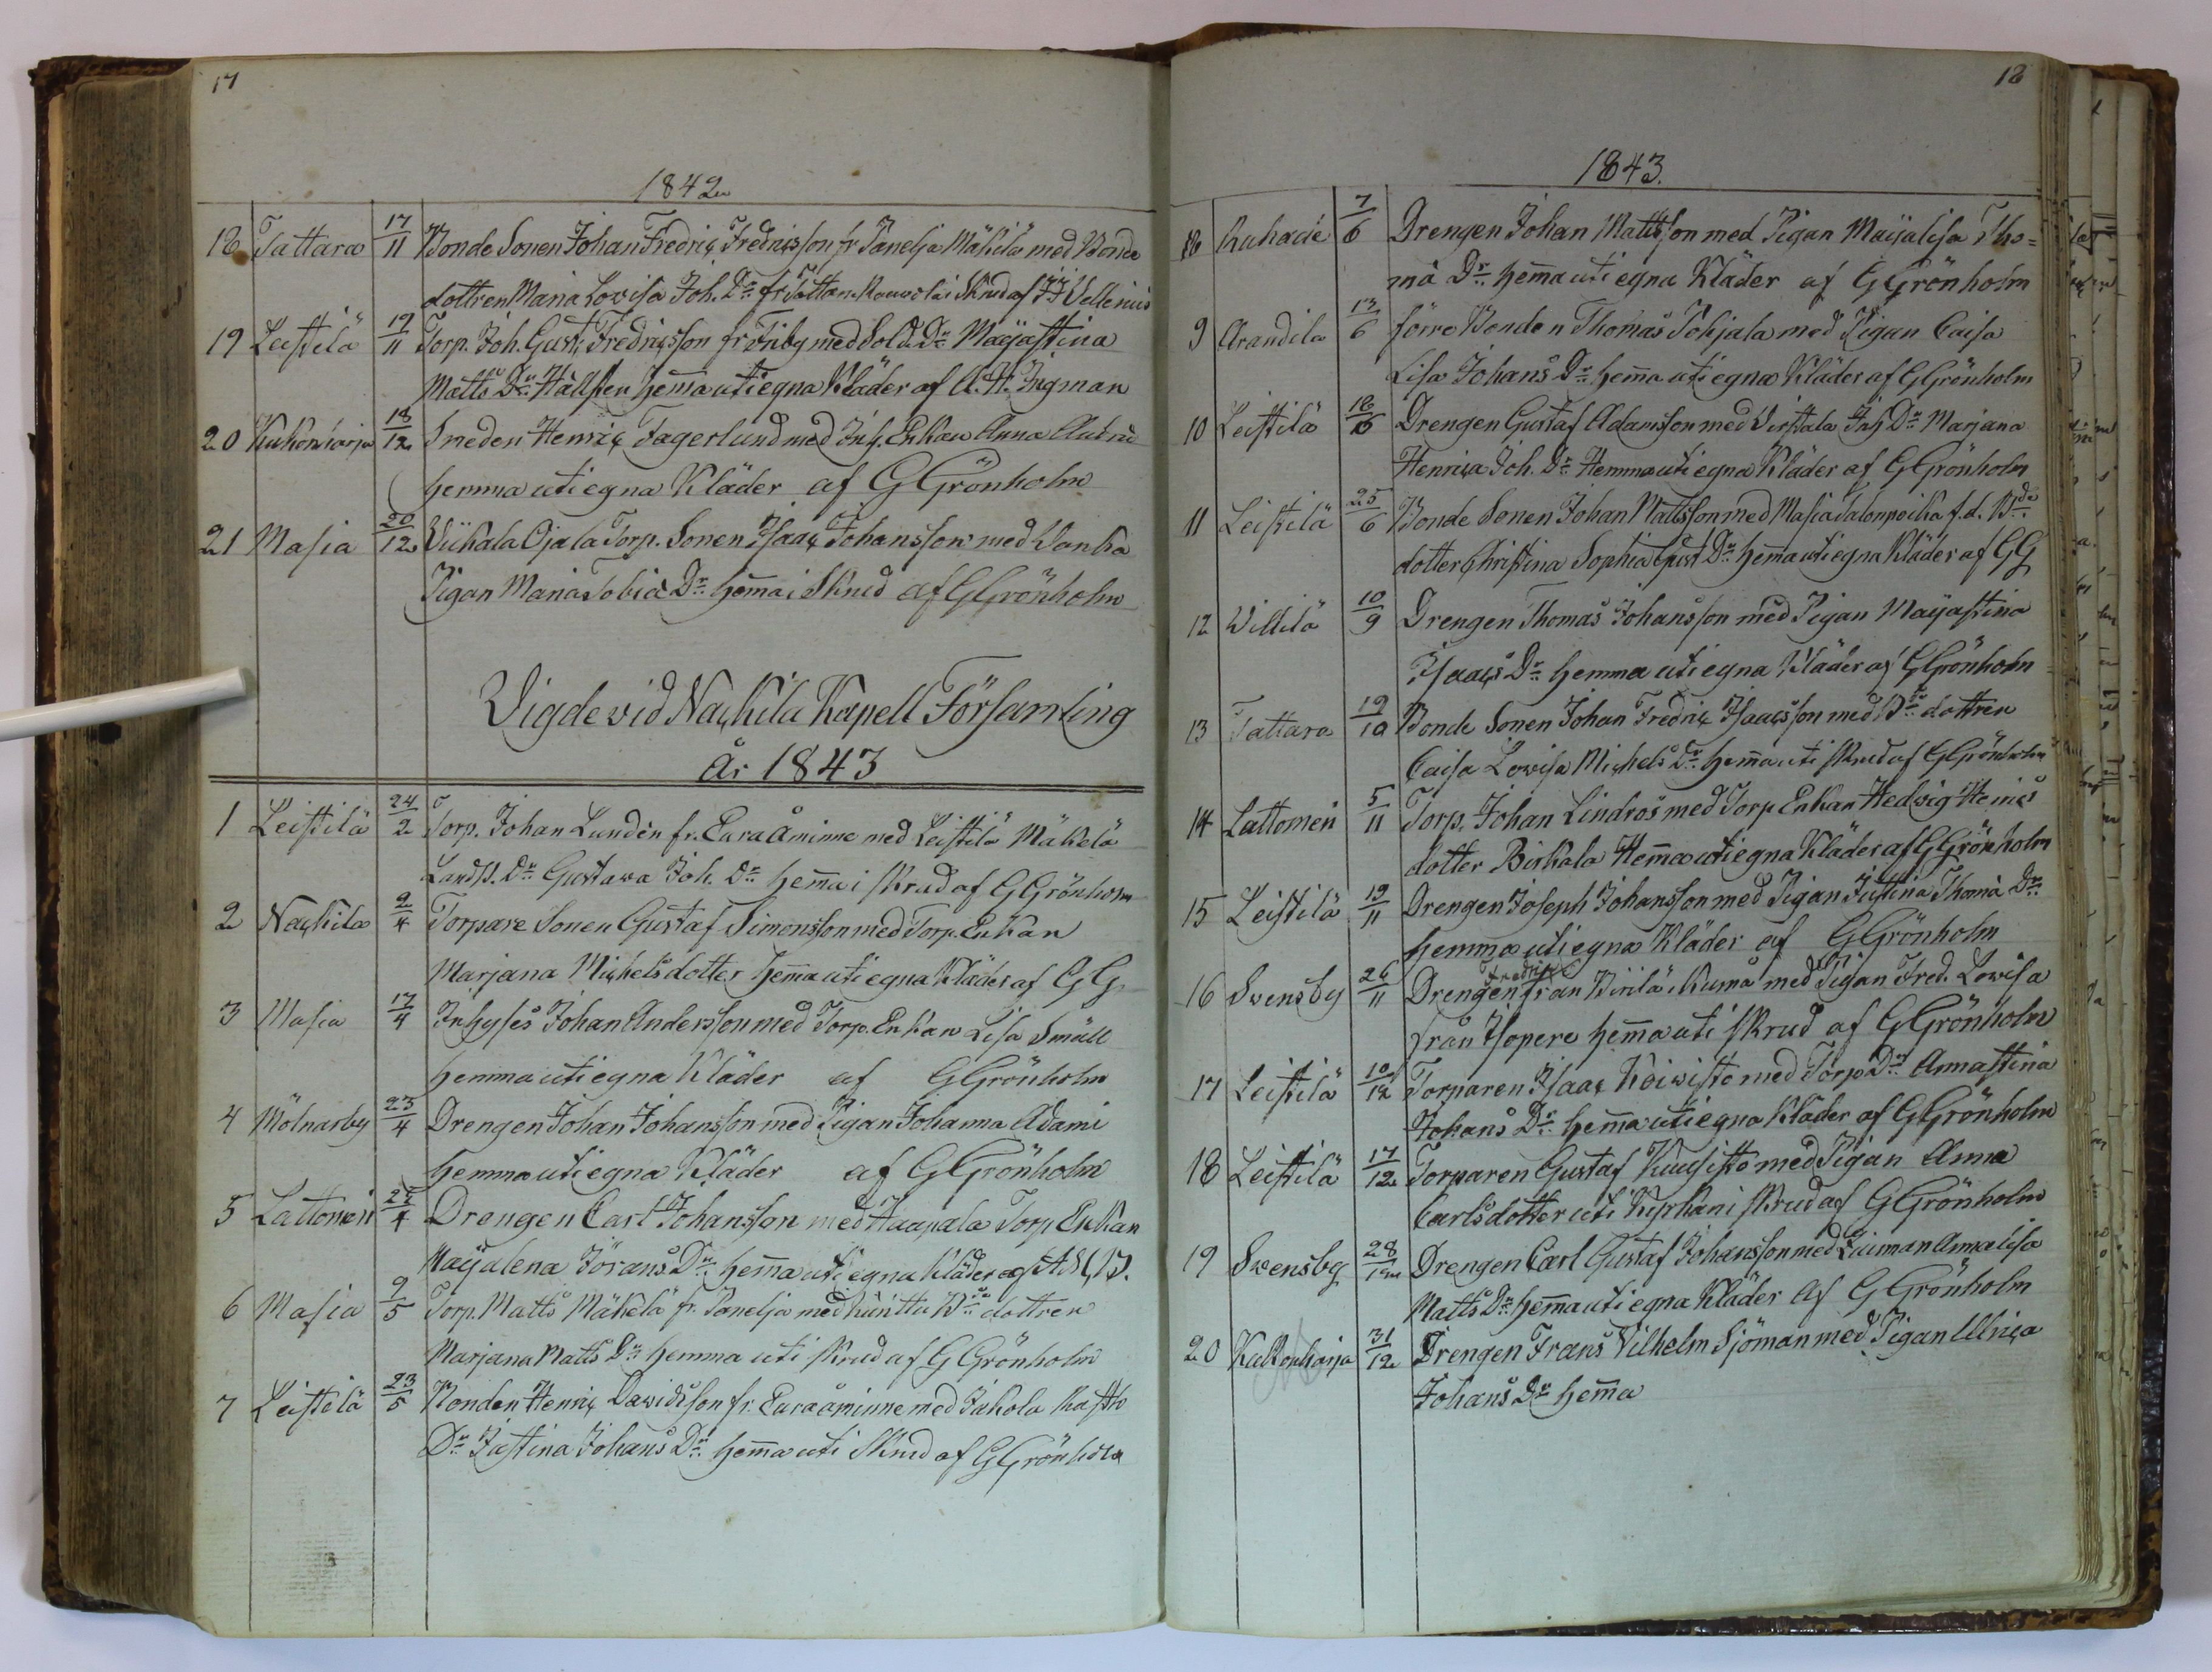 17
1842
18 Tattara 17/11 Bonde Sonen Johan Fredriç Fredriçsson fr Panelja Mäkilä med Bonde
dottren Maria Lovisa Joh. Dr fr Tattara Skrud af Vellenius
19 Leistilä 19/11 Torp. Joh. Gust. Fredriçsson fr med Sold. Dr Majastina
Matts Dr Hällsten hem̄a uti egna Kläder af A. H. Ingman
20 Kukonharja 18/12 Smeden Henriç Fagerlund med Inh. Enkan Anna
hemma uti egna Kläder af G Grönholm
21 Masia 20/12 Wiikala Ojala Torp. Sonen Isaaç Johansson med
Pigan Maria Tobiæ Dr hem̄a i Skrud af G Grönholm
Vigde vid Naçkila Kapell Församling
År 1843
1 Leistilä 24/2 Torp. Johan Lundén fr. Euraåminne med Leistilä Mäkelä
Dr Gustava Joh. Dr hem̄a i skrud af G Grönholm
2 Naçkila 2/4 Torpare Sonen Gustaf Simonsson med Torp. Enkan
Marjana Miçhelsdotter hem̄a uti egna Kläder af G G.
3 Masia 17/4 Inhyses Johan Andersson med Torp. Enkan Lisa Smäll
hemma uti egna Kläder af G Grönholm
4 Molnarby 23/4 Drengen Johan Johansson med Pigan Johanna Adami
hemma uti egna Kläder af G Grönholm
5 Lattomeri Drengen Carl Johansson med Haapala Torp Enkan
Majalena Jörans Dr hem̄a uti egna Kläder af
6 Masia 9/5 Torp. Matts Mäkelä fr. Panelja med Kinttu Bde dottren
Marjana Matts Dr hemma uti skrud af G Grönholm
7 Leistilä 23/5 Bonden Henriç Davidsson fr. Euraåminne med Jakola
Dr Justina Johans Dr hem̄a uti Skrud af G Grönholm
18
1843.
8 Ruhade 7/6 Drengen Johan Mattsson med Pigan Majalisa Tho=
mä Dr hem̄a uti egna Kläder af G Grönholm
9 Arandila 13/6 förre Bonden Thomas Pohjala med Pigan Caisa
Lisa Johans Dr hem̄a uti egna Kläder af G Grönholm
10 Leistilä 18/6 Drengen Gustaf Adamsson med Virstala Inh Dr Marjana
Henriça Joh. Dr Hemma uti egna Kläder af G Grönholm
11 Leistilä 25/6 Bonde Sonen Johan Mattsson med Masia Talonpoika f.d. Bde
dotter Christina Sophia Gust Dr hem̄a uti egna Kläder af G G
12 Willilä 10/9 Drengen Thomas Johansson med Pigan Majastina
Isaaçs Dr hemma uti egna Kläder af G Grönholm
13 Tattara 19/10 Bonde Sonen Johan Fredriç Isaaçsson med Bde dottren
Caisa Lovisa Miçhels Dr hem̄a uti skrud af G Grönholm
14 Lattomeri 5/11 Torp. Johan Lindros med Torp Enkan Hedvig Henriçs
dotter Pirkala Hem̄a uti egna Kläder af G Grönholm
15 Leistilä 19/11 Drengen Joseph Johansson med Pigan Justina Thomä Dr
hemma uti egna Kläder af G Grönholm
Fredriç
16 Svensby 26/11 Drengen från i Kumo med Pigan Fred. Lovisa
från Isopere hem̄a uti skrud af G Grönholm
17 Leistilä 10/12 Torparen Isaaç Koivisto med Torp Dr Annastina
Johans Dr hem̄a uti egna Kläder af G Grönholm
18 Leistilä 17/12 Torparen Gustaf Kuusisto med Pigan Anna
Carlsdotter uti Kyrkan i skrud af G Grönholm
19 Svensby 28/12 Drengen Carl Gustaf Johansson med Annalisa
Matts Dr hem̄a uti egna Kläder af G Grönholm
20 Kukonharja 31/12 Drengen Frans Vilhelm Sjöman med Pigan Ulriça
Johans Dr hem̄a